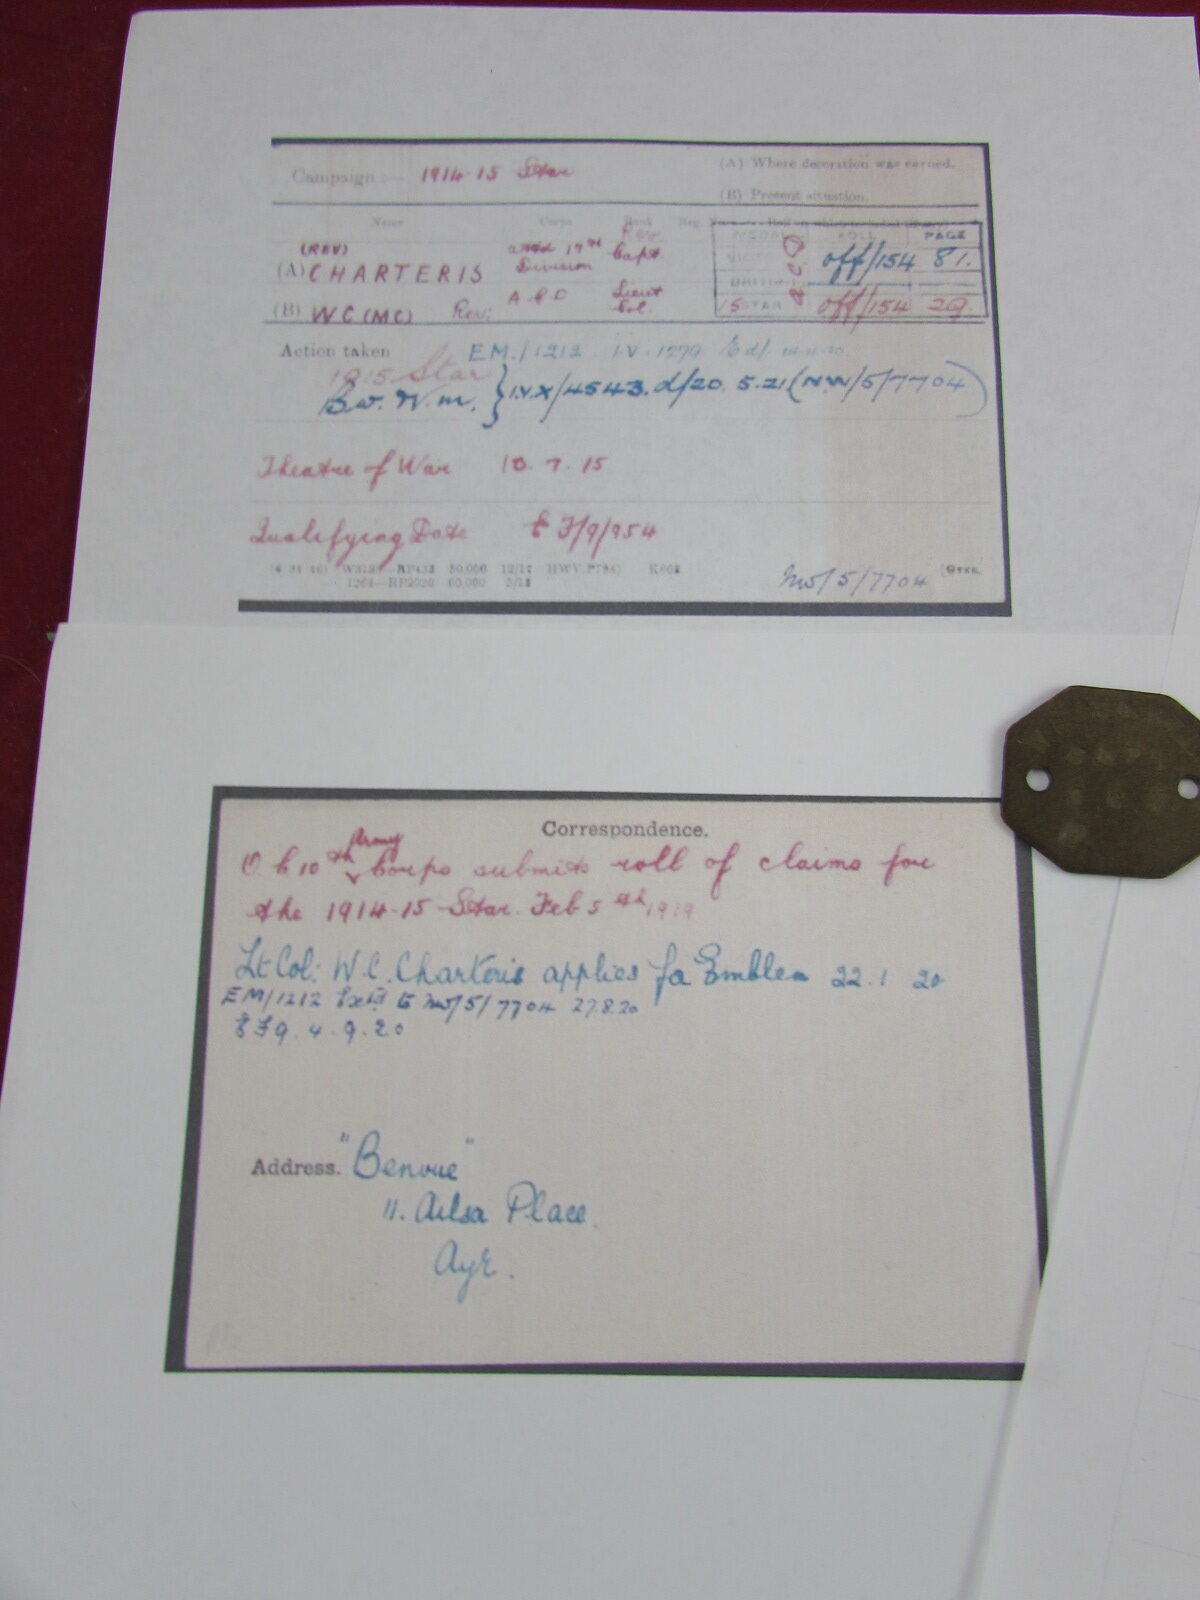 Campaign :— 1914-15 Star
(A) Where decoration was earned.
(B) Present situation.
Name Corps Rank Reg. No.
MEDAL ROLL PAGE
(REV) attd 17th Rev. Capt.
(A) CHARTERIS Division
VICTORY off/154 81.
BRITISH
(B) W C (MC) Rev: A C D Lieut Col.
15 STAR off/154 29.
Action taken EM./1212 I.V. 1279
1915 Star
B.W. V.M. } I.V.X/4543. d/20.5.21 (NW/5/7704)
Theatre of War 10.7.15
Qualifying Date E F/9/954
60,000
NW/5/7704 [OVER.
Correspondence.
O C 10th Army Corps submits roll of claims for
the 1914-15 Star. Feb 5th 1919
Lt Col: W.C. Charteris applies fa Emblem 22.1 20
EM/1212 NW/5/7704 27.8.20
E F 9. 4.9.20
Address. "Benvue"
11. Ailsa Place.
Ayr.